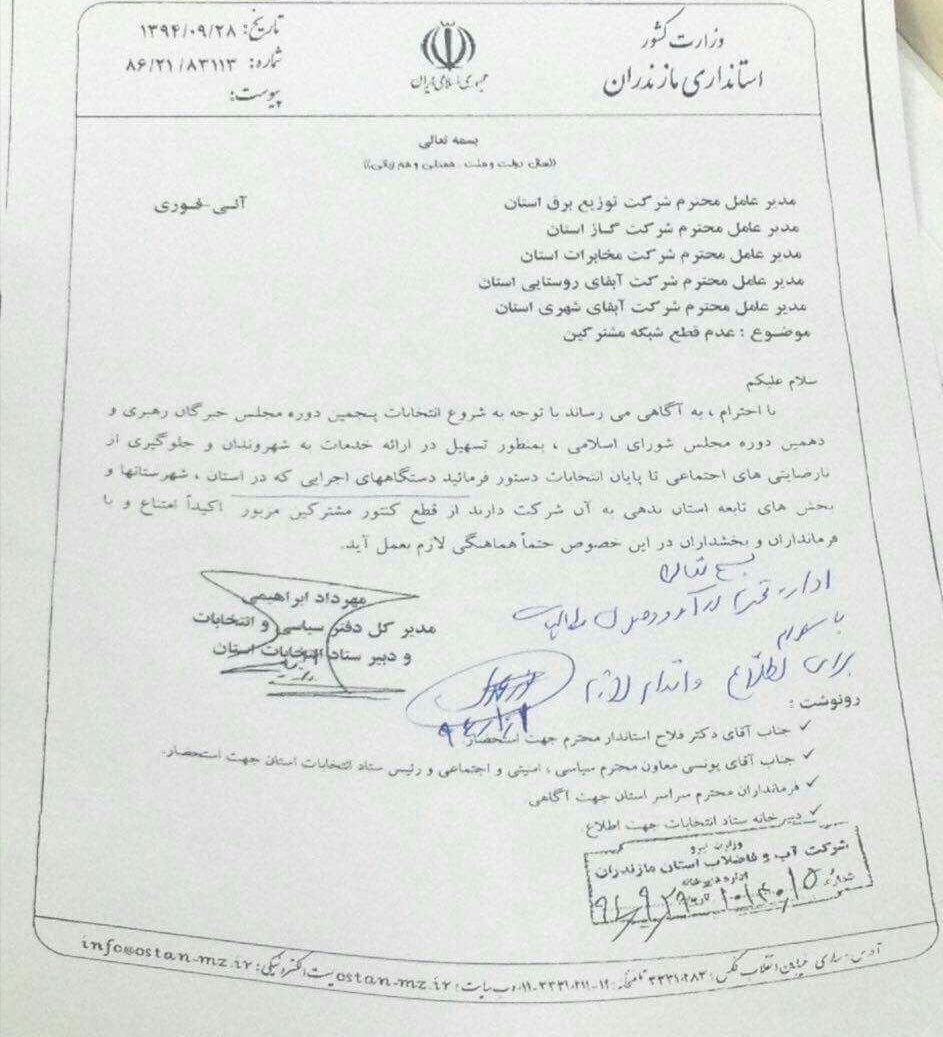 وزارت کشور
استانداری مازندران
جمهوری اسلامی ایران
تاریخ: ۱۳۹۴/۰۹/۲۸
شماره: ۸۶/۲۱/۸۳۱۱۳
پیوست:
بسمه تعالی
((سال دولت و ملت، همدلی و هم زبانی))
آنی-فوری
مدیر عامل محترم شرکت توزیع برق استان
مدیر عامل محترم شرکت گاز استان
مدیر عامل محترم شرکت مخابرات استان
مدیر عامل محترم شرکت آبفای روستایی استان
مدیر عامل محترم شرکت آبفای شهری استان
موضوع : عدم قطع شبکه مشترکین
سلام علیکم
با احترام ، به آگاهی می رساند با توجه به شروع انتخابات پنجمین دوره مجلس خبرگان رهبری و
دهمین دوره مجلس شورای اسلامی ، بمنظور تسهیل در ارائه خدمات به شهروندان و جلوگیری از
نارضایتی های اجتماعی تا پایان انتخابات دستور فرمائید دستگاههای اجرایی که در استان ، شهرستانها و
بخش های تابعه استان بدهی به آن شرکت دارند از قطع کنتور مشترکین مزبور اکیداً امتناع و با
فرمانداران و بخشداران در این خصوص حتماً هماهنگی لازم بعمل آید.
مهرداد ابراهیمی
مدیر کل دفتر سیاسی و انتخابات
و دبیر ستاد انتخابات استان
بسمه تعالی
اداره درآمد و وصول مطالبات
با سلام
برای اطلاع و اقدام لازم
رونوشت :
✓ جناب آقای دکتر فلاح استاندار محترم جهت استحضار.
✓ جناب آقای یونسی معاون محترم سیاسی ، امنیتی و اجتماعی و رئیس ستاد انتخابات استان جهت استحضار.
✓ فرمانداران محترم سراسر استان جهت آگاهی
✓ دبیرخانه ستاد انتخابات جهت اطلاع.
وزارت نیرو
شرکت آب و فاضلاب استان مازندران
آدرس: ساری خیابان انقلاب
وب سایت: ostan-mz.ir پست الکترونیکی: info@ostan-mz.ir